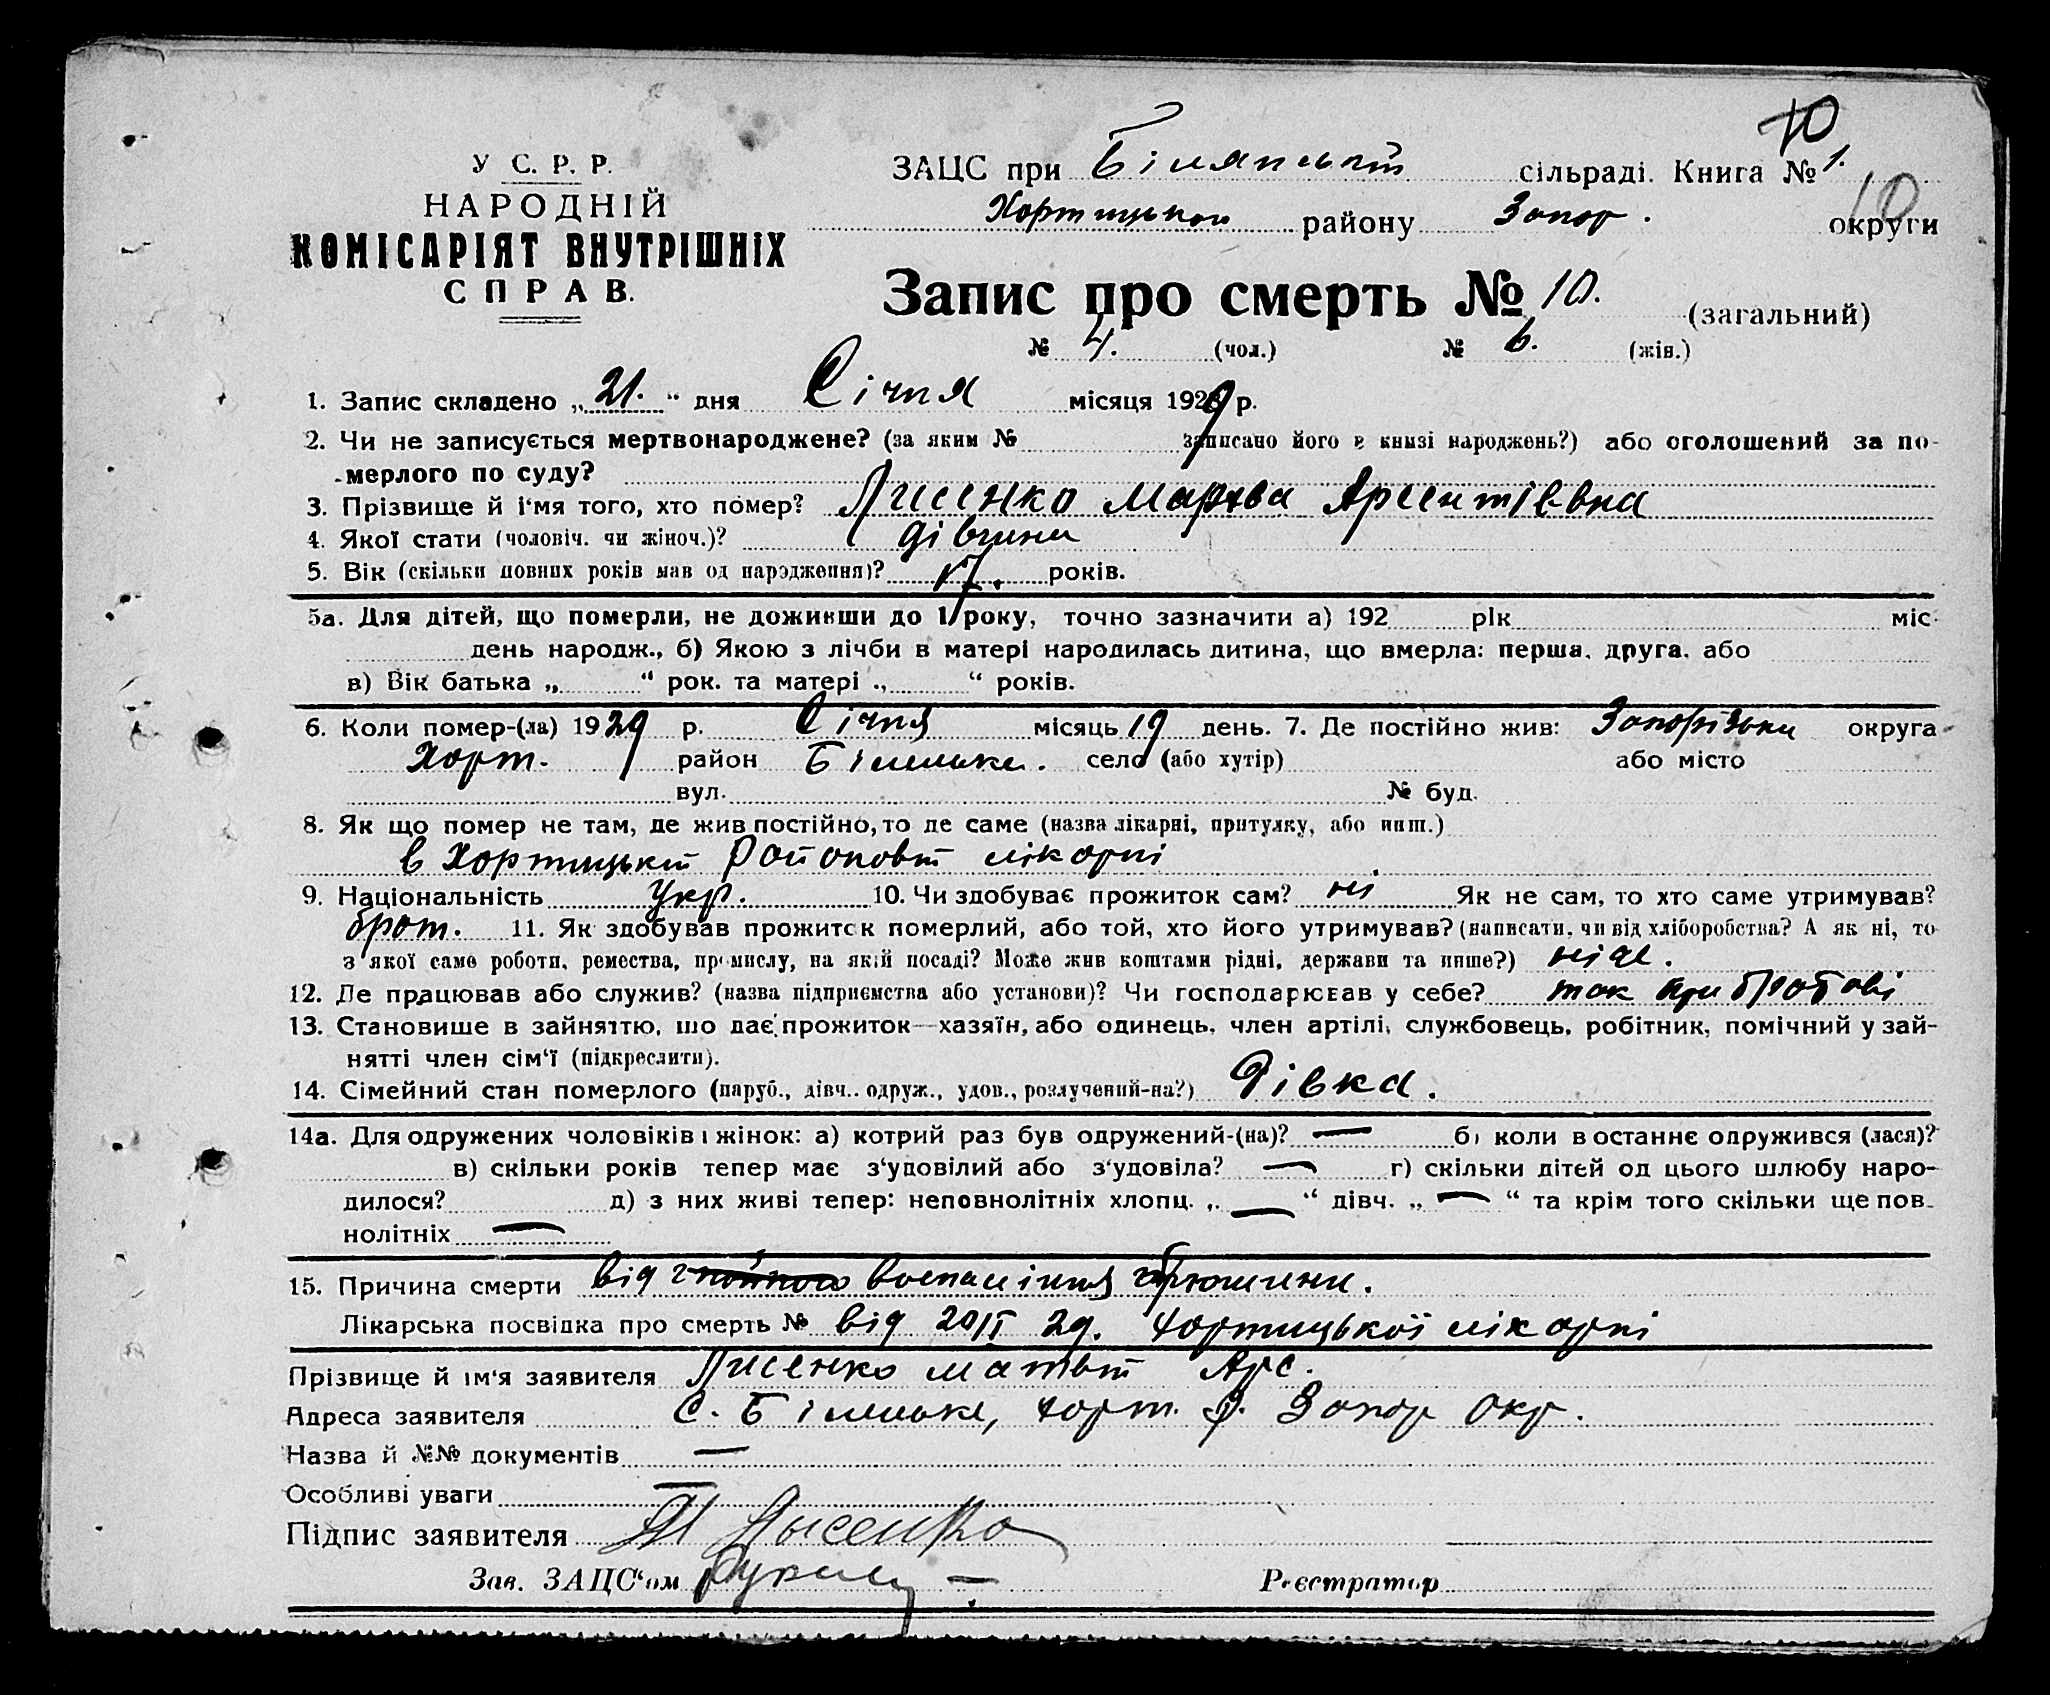 10
У С. Р. Р.
НАРОДНІЙ
КОМІСАРІЯТ ВНУТРІШНІХ
СПРАВ.
ЗАЦС при сільраді. Книга № 1.
10
району Запор. округи
Запис про смерть № 10. (загальний)
№ 4. (чол.) № 6. (жін.)
1. Запис складено „21." дня Січня місяця 1929 р.
2. Чи не записується мертвонароджене? (за яким № записано його в книзі народжень?) або оголошений за по-
мерлого по суду?
3. Прізвище й і'мя того, хто помер? Лисенко Арсентіевна
4. Якої стати (чоловіч. чи жіноч.)? дівчина
5. Вік (скільки повних років мав од народження)? 17. років.
5а. Для дітей, що померли, не доживши до 1 року, точно зазначити а) 192 рік міс.
день народж., б) Якою з лічби в матері народилась дитина, що вмерла: перша, друга, або
в) Вік батька „ " рок. та матері „ " років.
6. Коли помер-(ла) 1929 р. Січня місяць 19 день. 7. Де постійно жив: округа
Хорт. район село (або хутір) або місто
вул. № буд.
8. Як що помер не там, де жив постійно, то де саме (назва лікарні, притулку, або инш.)
в Хортицькій Районовій лікарні
9. Національність Укр. 10. Чи здобуває прожиток сам? ні Як не сам, то хто саме утримував?
брат. 11. Як здобував прожиток померлий, або той, хто його утримував? (написати, чи від хліборобства? А як ні, то
з якої саме роботи, ремества, промислу, на якій посаді? Може жив коштами рідні, держави та инше?) ніде.
12. Де працював або служив? (назва підприємства або установи)? Чи господарював у себе? так при братові
13. Становище в зайняттю, що дає прожиток—хазяїн, або одинець, член артілі, службовець, робітник, помічний у зай-
нятті член сім'ї (підкреслити).
14. Сімейний стан померлого (паруб., дівч.. одруж., удов., розлучений-на?) Дівка.
14а. Для одружених чоловіків і жінок: а) котрий раз був одружений-(на)? — б) коли в останнє одружився (лася)?
в) скільки років тепер має з'удовілий або з'удовіла? — г) скільки дітей од цього шлюбу наро-
дилося? д) з них живі тепер: неповнолітніх хлопц. „ — " дівч. „ — " та крім того скільки ще пов-
нолітніх —
15. Причина смерти від воспаління брюшини.
Лікарська посвідка про смерть № від 20/I 29. Хортицької лікарні
Прізвище й ім'я заявителя Лисенко Матвій Арс.
Адреса заявителя С. Біленьке, Хорт. р. Запор Окр.
Назва й №№ документів —
Особливі уваги —
Підпис заявителя М Лысенко
Зав. ЗАЦС'ом
Реєстратор